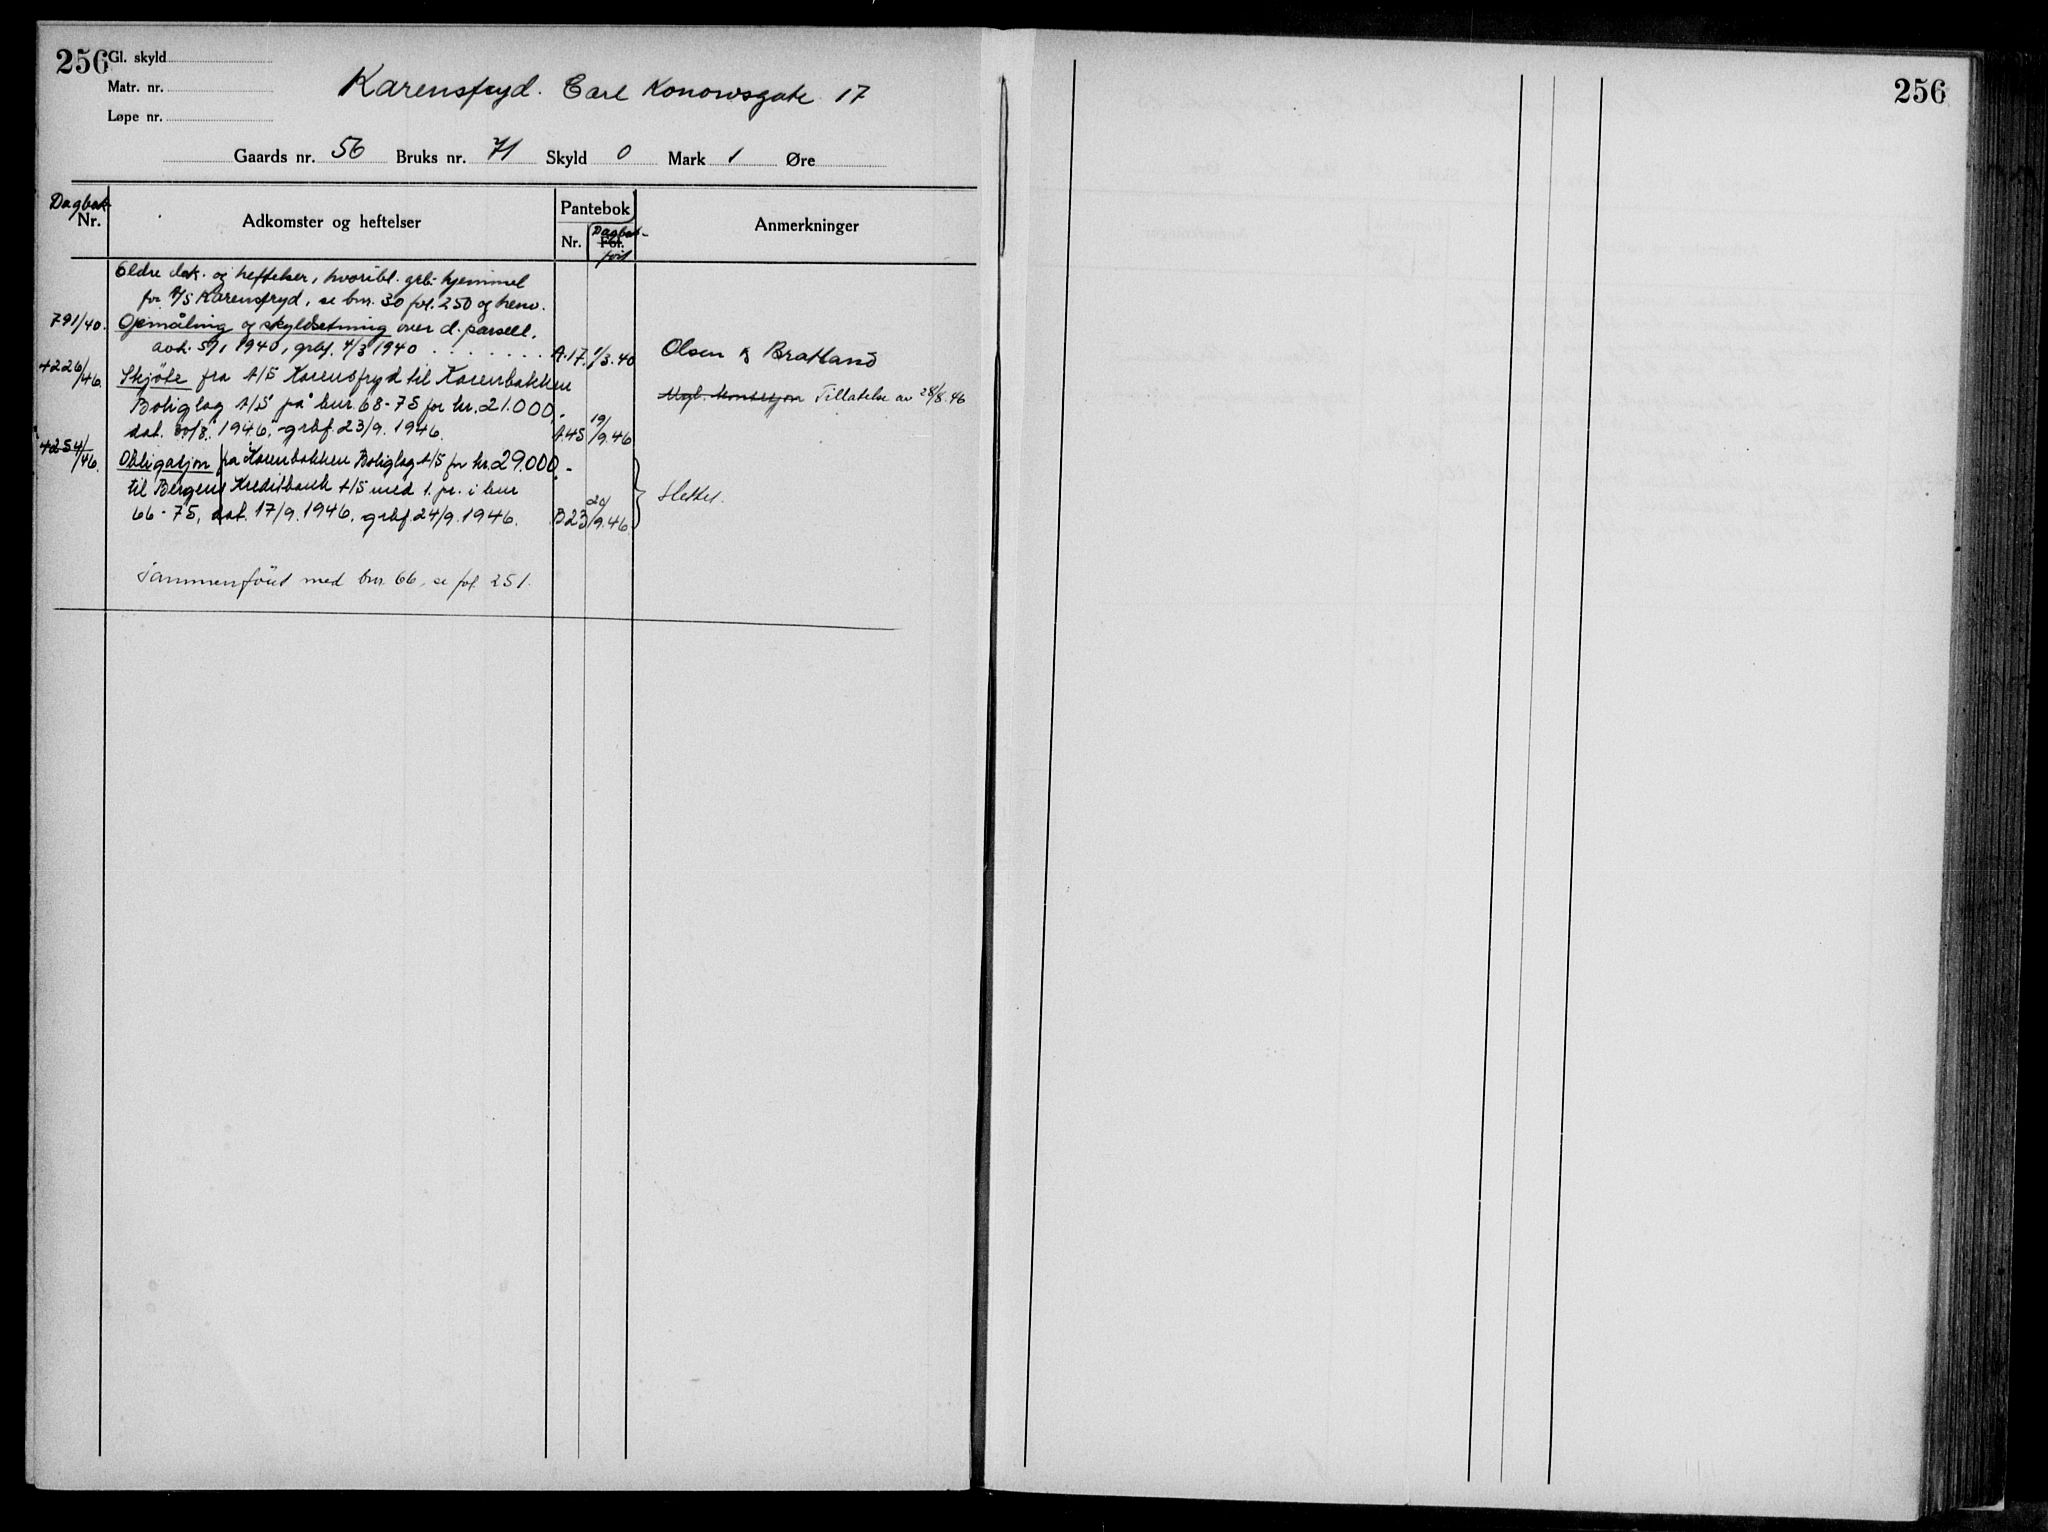 256 Gl. skyld
Matr. nr.
Løpe nr.
Karensfryd. Carl Konowsgate 17
Gaards nr. 56 Bruks nr. 71 Skyld 0 Mark 1 Øre
Dagbok
Nr. Adkomster og heftelser Pantebok Anmerkninger
Nr. Fol. Dagbok-
ført
Eldre dok. og heftelser, hvoribl. grb. hjemmel
for A/S Karensfryd, se bnr. 30 fol. 250 og henv.
791/40. Opmåling og skyldsetning over d. parsell,
avh. 5/1 1940, grbf. 4/3 1940 . . . . . . . A.17. 1/3.40 Olsen & Bratland
4226/46. Skjøte fra A/S Karensfryd til Karenbakken
Boliglag A/S på bnr. 68-75 for kr. 21.000,- Tillatelse av 28/8.46
dat. 30/8. 1946, grbf. 23/9. 1946. A.45 19/9.46
4254/46. Obligasjon fra Karenbakken Boliglag A/S for kr. 29.000,-
til Bergens Kreditbank A/S med 1. pr. i bnr
66-75, dat. 17/9. 1946, grbf. 24/9. 1946. B23 20/9.46 Slettet.
Sammenføiet med bnr. 66, se fol. 251.
256